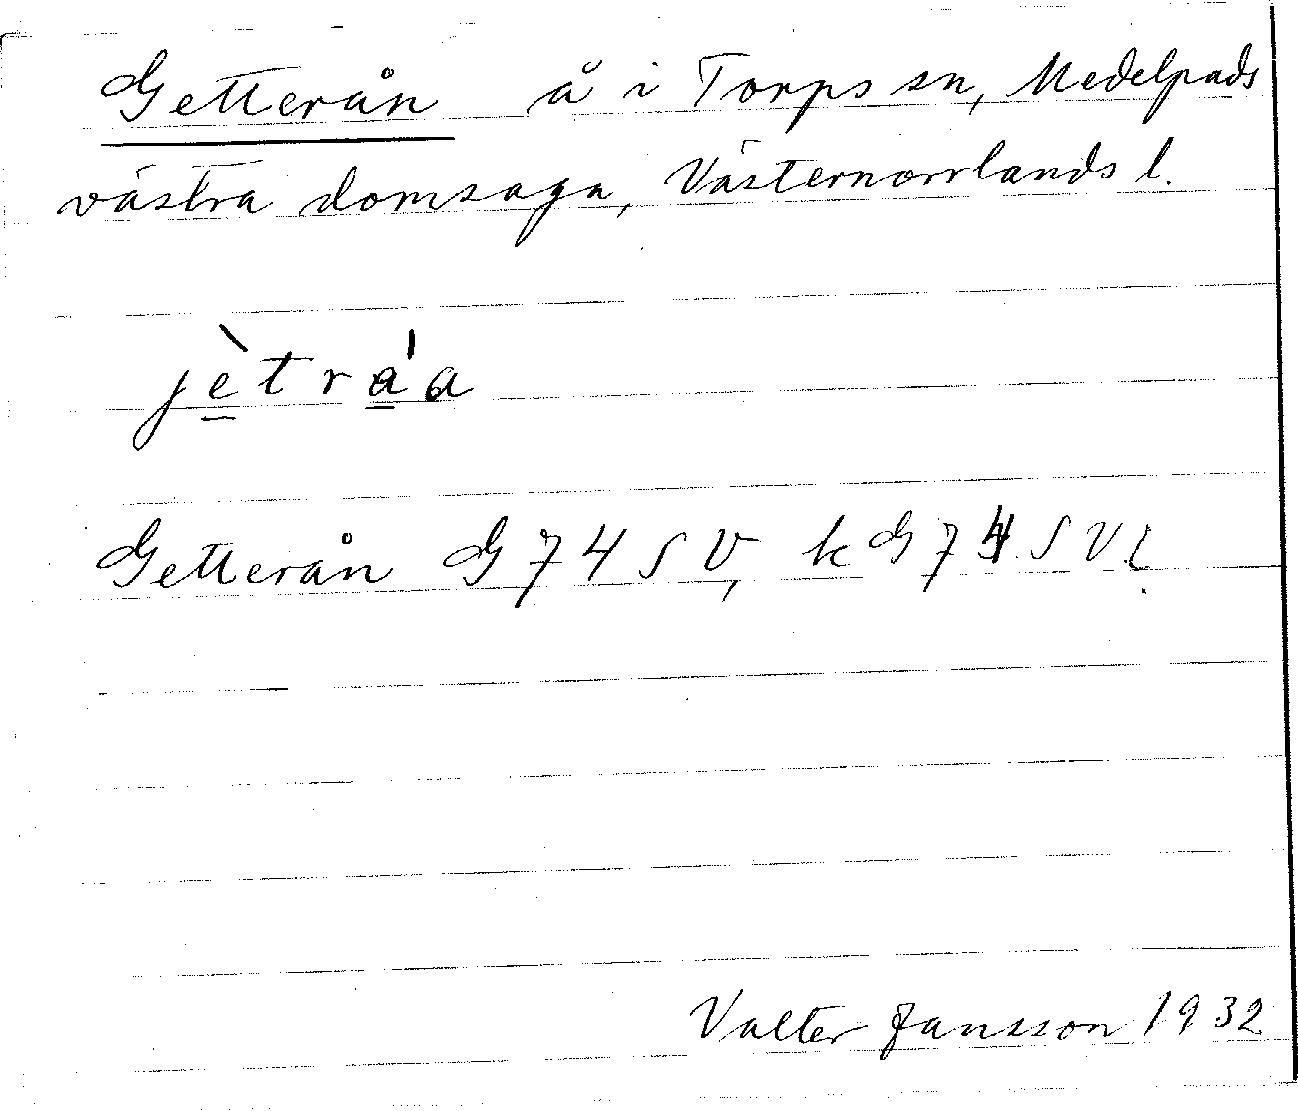 Getterån å i Torps sn, Medelpads
västra domsaga, Västernorrlands l.
jètráa
Getterån G 74 SV, k G 74 SV
Valter Jansson 1932